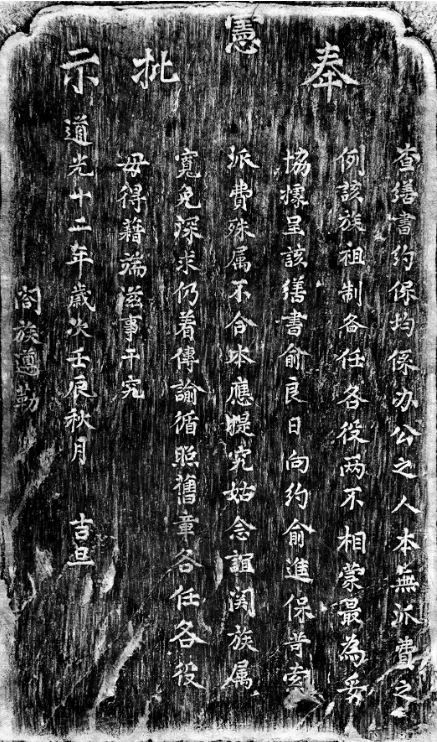 奉憲批示
查繕書約保均係办公之人本無派費之
例該族祖制各任各役两不相蒙最為妥
協據呈該繕書俞良日向約俞進保苛索
派費殊属不合本應提究姑念誼関族属
寬免深求仍着傳諭循照舊章各任各役
毋得藉端滋事干究
道光十二年歲次壬辰秋月　吉旦
閤族遵勒